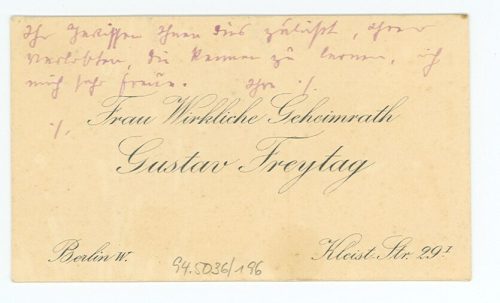 Ihr Gewissen Ihnen dies zuläßt, Ihren
Verlobten, die kennen zu lernen, ich
mich sehr freue. Ihre ./.
./.
Frau Wirkliche Geheimrath
Gustav Freytag
Berlin W.
94.5036/196
Kleist-Str. 29 I